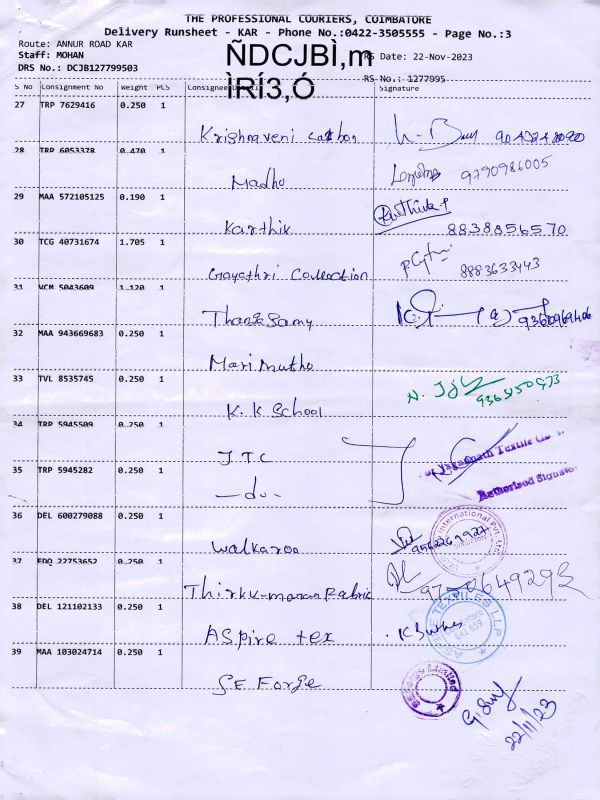 THE PROFESSIONAL COURIERS, COIMBATORE
Delivery Runsheet - KAR - Phone No.:0422-3505555 - Page No.:3
Route: ANNUR ROAD KAR
Staff: MOHAN ÑDCJBÌ,m RS Date: 22-Nov-2023
DRS No.: DCJB127799503 ÌRÍ3,Ó RS No.: 1277995
S No Consignment No Weight PCS Consignee Signature
27 TRP 7629416 0.250 1
Krishnaveni
28 TRP 6053378 0.470 1
Madhu 9790986005
29 MAA 572105125 0.190 1
Karthik 8838856570
30 TCG 40731674 1.705 1
Gayathri Collection 8883633443
31 VCM 5043609 1.120 1
32 MAA 943669683 0.250 1
Mari Muthu
33 TVL 8535745 0.250 1
K. K School
34 TRP 5945509 0.250 1
JTC Textile
35 TRP 5945282 0.250 1
—do— Authorised Signatory
36 DEL 600279088 0.250 1
Walkaroo International Pvt. Ltd.
37 EDQ 22753652 0.250 1
38 DEL 121102133 0.250 1
Aspire tex ASPIRE TEXTILES LLP 641 659
39 MAA 103024714 0.250 1
S.E Forge Limited
22/11/23